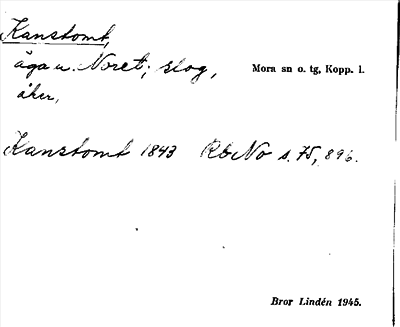 Kanstomt,
äga u. Noret; slog, Mora sn o. tg, Kopp. l.
åker,
Kanstomt 1843 RdNo s. 75, 896.
Bror Lindén 1945.